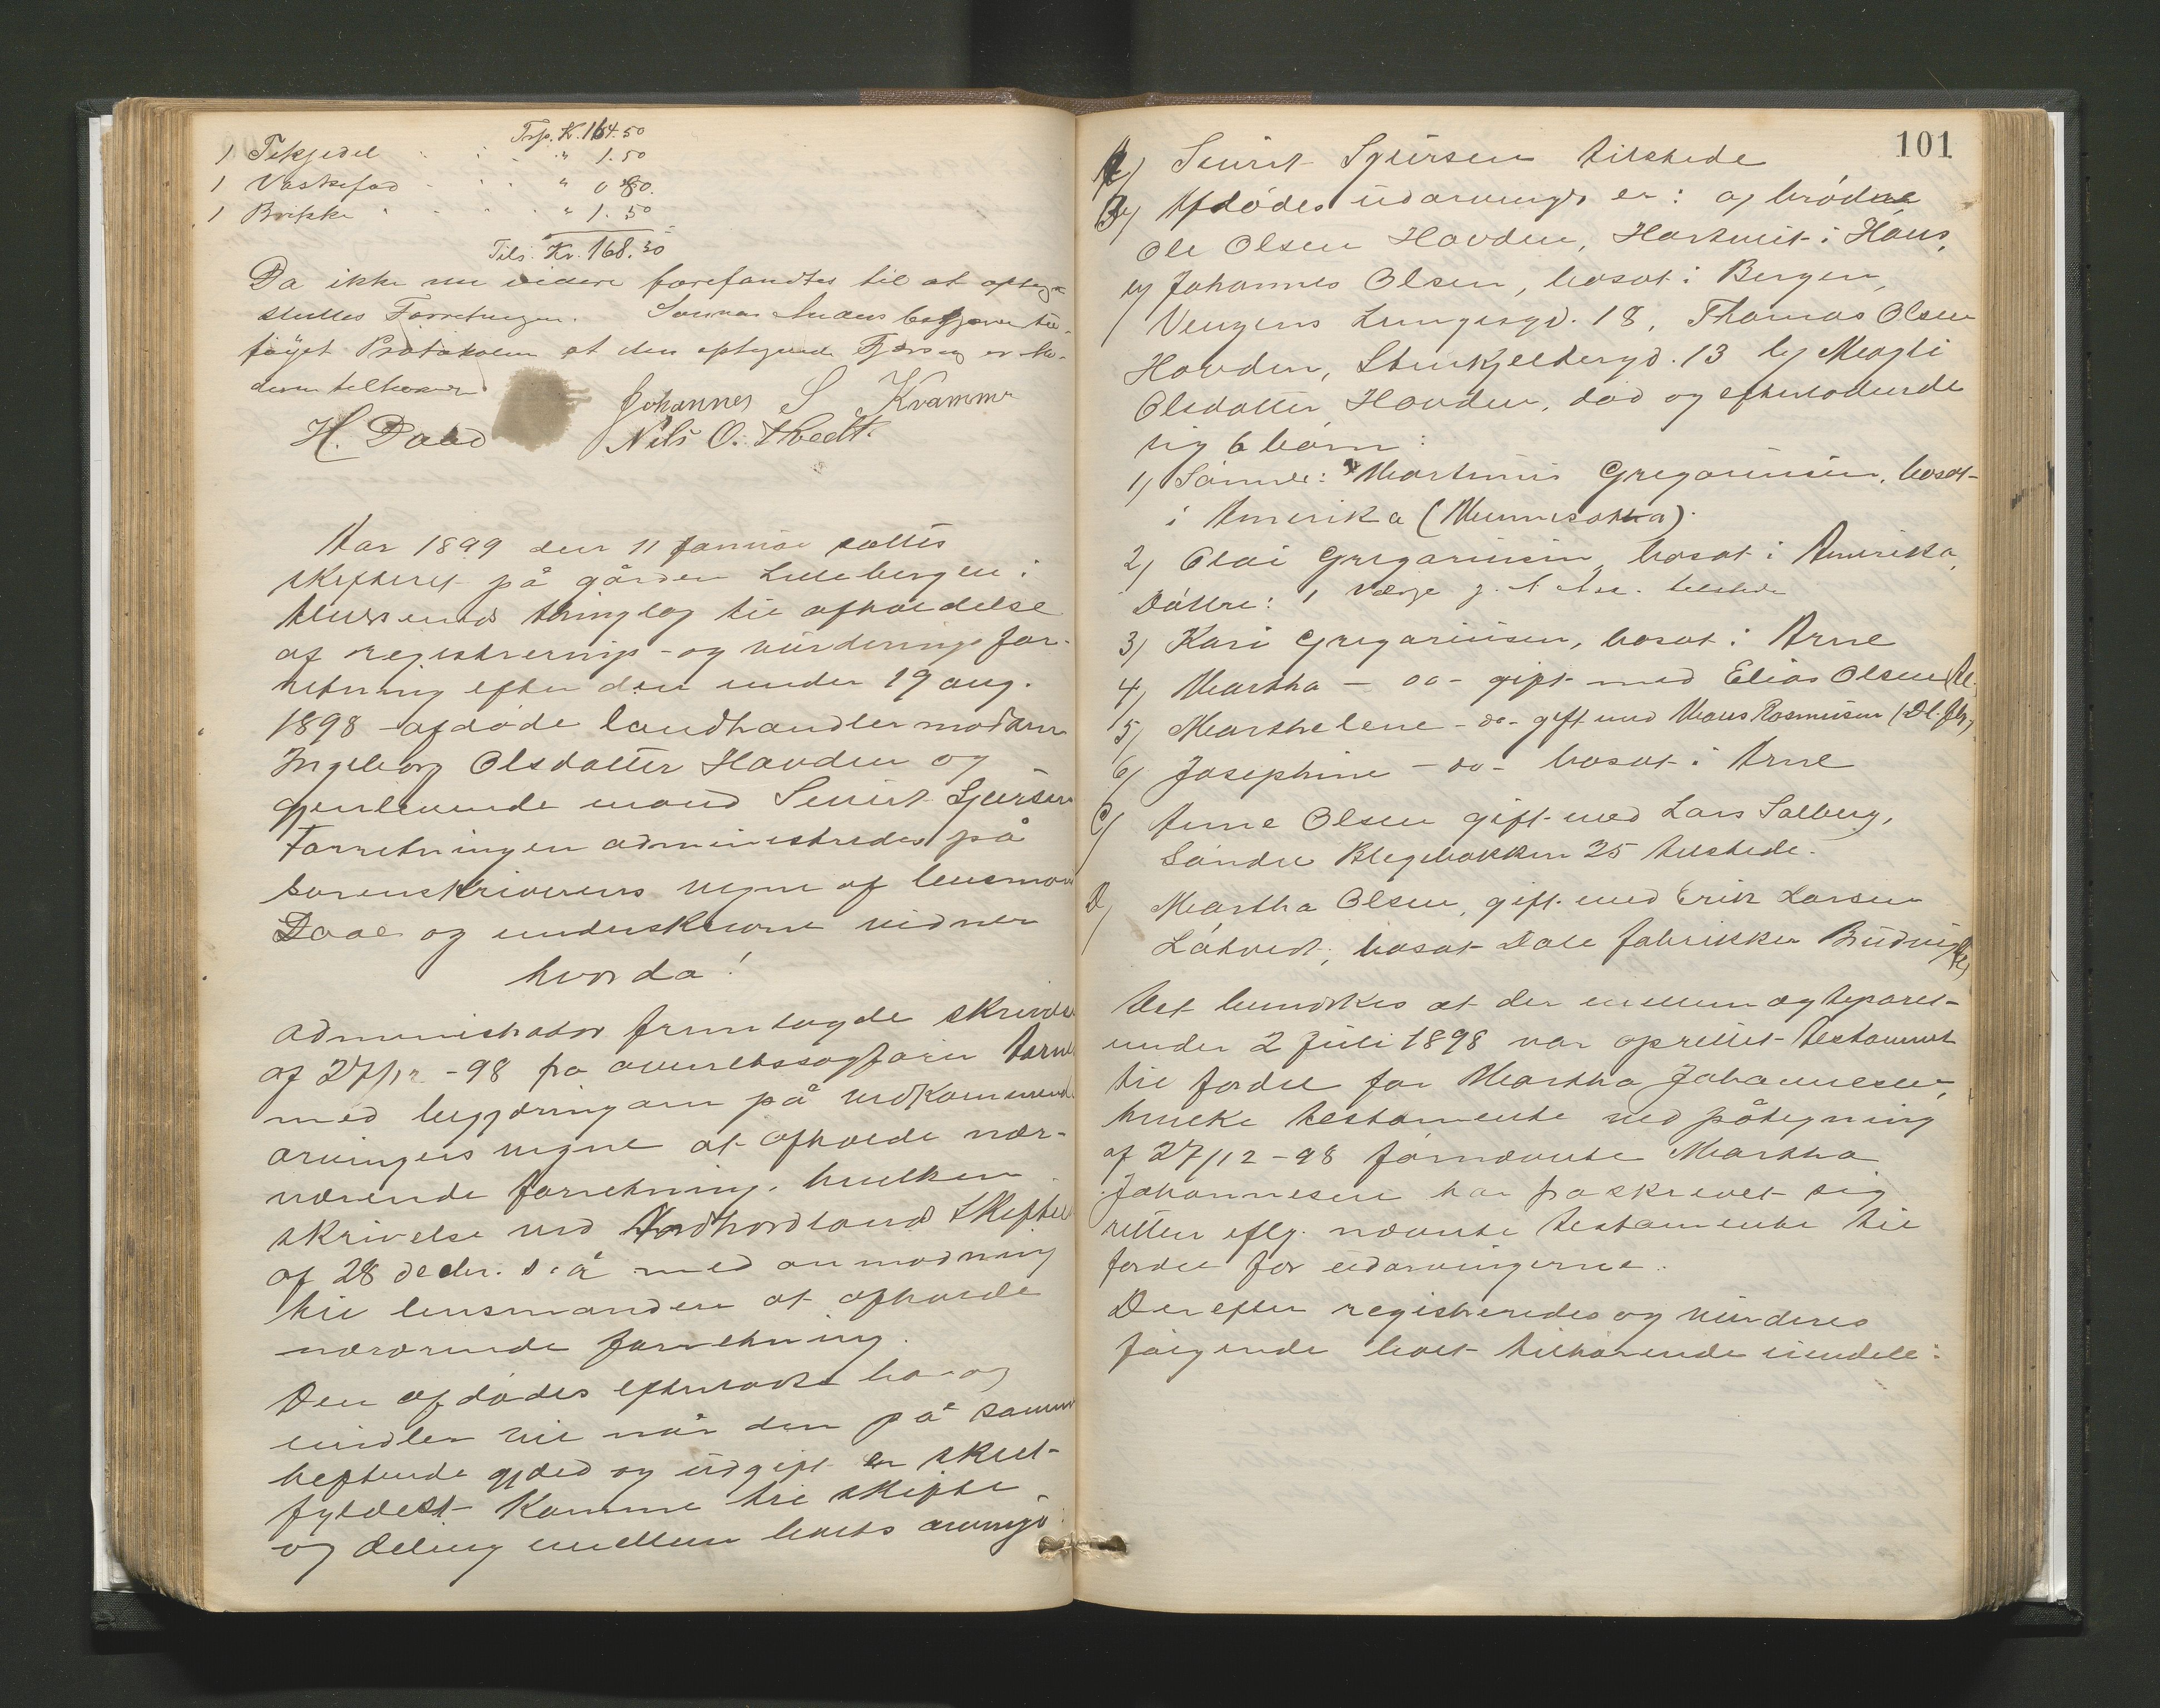 Trsp. K. 164.50
1 Tekjedel " 1.50
1 Vaskefad " 0.80.
1 Brikke " 1.50
Tils. Kr. 168.30
Da ikke mere videre forefandtes til at optegne
sluttes Forretningen.
føiet Protokolen at den
denne tilhører
Johannes S Kvamme
H. Daae Nils O. Tvedt.
Aar 1899 den 11 januar sattes
skifteret på gården Lilleberglie i
thinglag til afholdelse
af registrerings- og vurderingsfor-
retning efter den under 19 aug.
1898 afdøde landhandler madam
Ingeborg Olsdatter Havden og
gjenlevende mand Sjurt Sjursen
Forretningen administredes på
sorenskriverens vegne af lensmand
Daae og underskrevne vidner
hvorda!
Administrator fremlagde skrivelse
af 27/12 - 98 fra overretssagfører
med begjæring om på vedkommende
arvingers vegne at afholde nær-
værende forretning, hvilken
skrivelse ved Nordhordlands Skifteret
af 28 decbr. s. å. med anmodning
til lensmanden at afholde
nærværende forretning.
Den afdødes efterladte bo og
midler vil når den på samme
heftende gjæld og udgift er skel-
fyldest komme til skifte
og deling mellem boets arvinge
101
Sjurt Sjursen tilstede
Afdødes udarvinger er: a) brødre
Ole Olsen Havden, Hartveit i Haus,
b) Johannes Olsen, bosat i Bergen,
Lungegd. 18, Thomas Olsen
Havden, Stenkjeldergd. 13 b) Magli
Olsdatter Havden, død og efterladende
sig 6 børn:
1) Sønner: Martinus Gregoriusen, bosat
i Amerika (Minnesotta).
2) Olai Gregoriusen bosat i Amerika,
Døttre: 1 Værge tilstede
3) Kari Gregoriusen, bosat i Arne
4) Martha - do - gift med Elias Olsen
5) Marthelene - do - gift med Mons Rasmusen
6) Josephine - do - bosat i Arne
C) Anne Olsen gift med Lars Salberg,
Søndre Blegebakken 25 tilstede.
D) Martha Olsen, gift med Erik Larsen
Låtveit, bosat Dale fabrikker
Det bemærkes at der mellem ægteparet
under 2 juli 1898 var oprettet testament
til fordel for Martha Johannesen,
hvilke testamente ved påtegning
af 27/12 - 98 førnævnte Martha
Johannesen har fraskrevet sig
retten eflg. nævnte testamente til
fordel for udarvingerne.
Derefter registreredes og vurderes
følgende boet tilhørende eiendele: